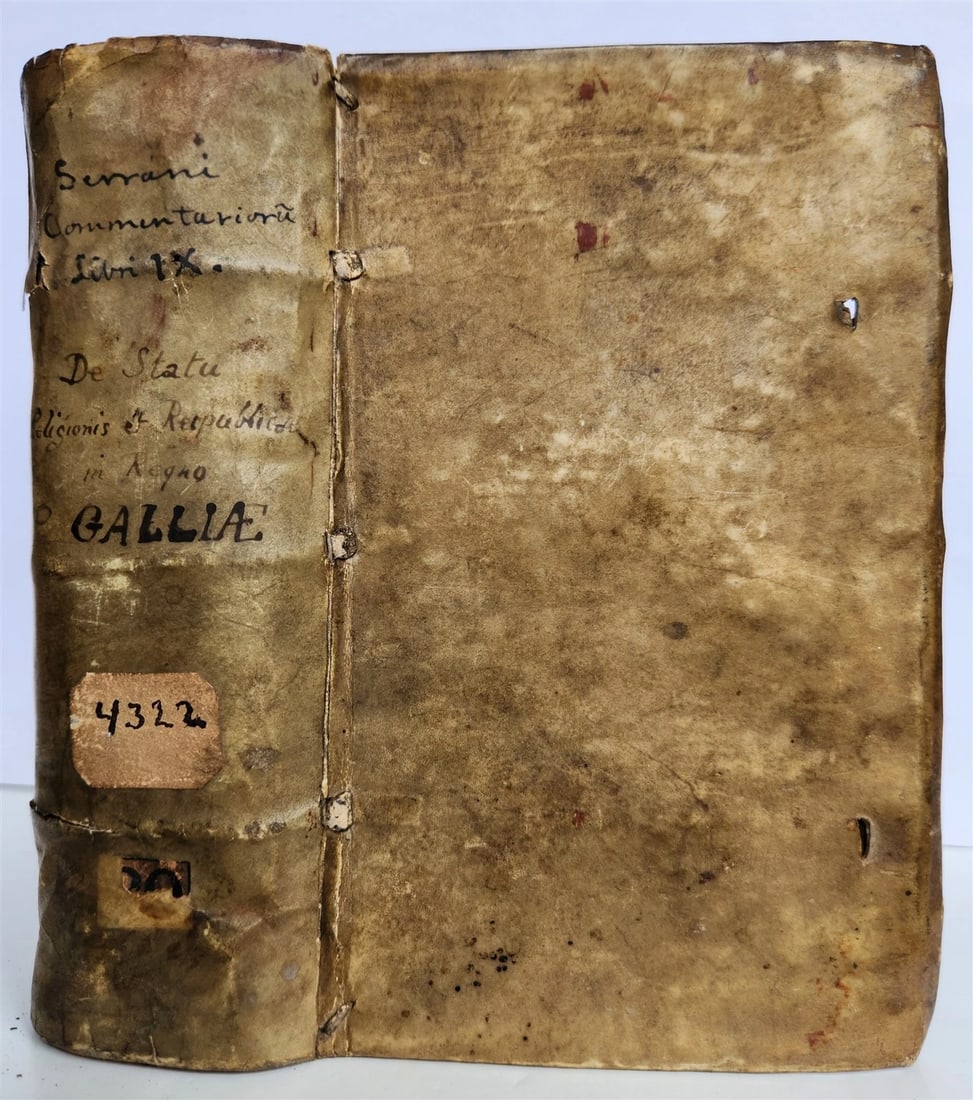 Serrani
Commentariorū
Libri IX.
De Statu
Religionis et Reipublicae
in Regno
GALLIÆ
4322